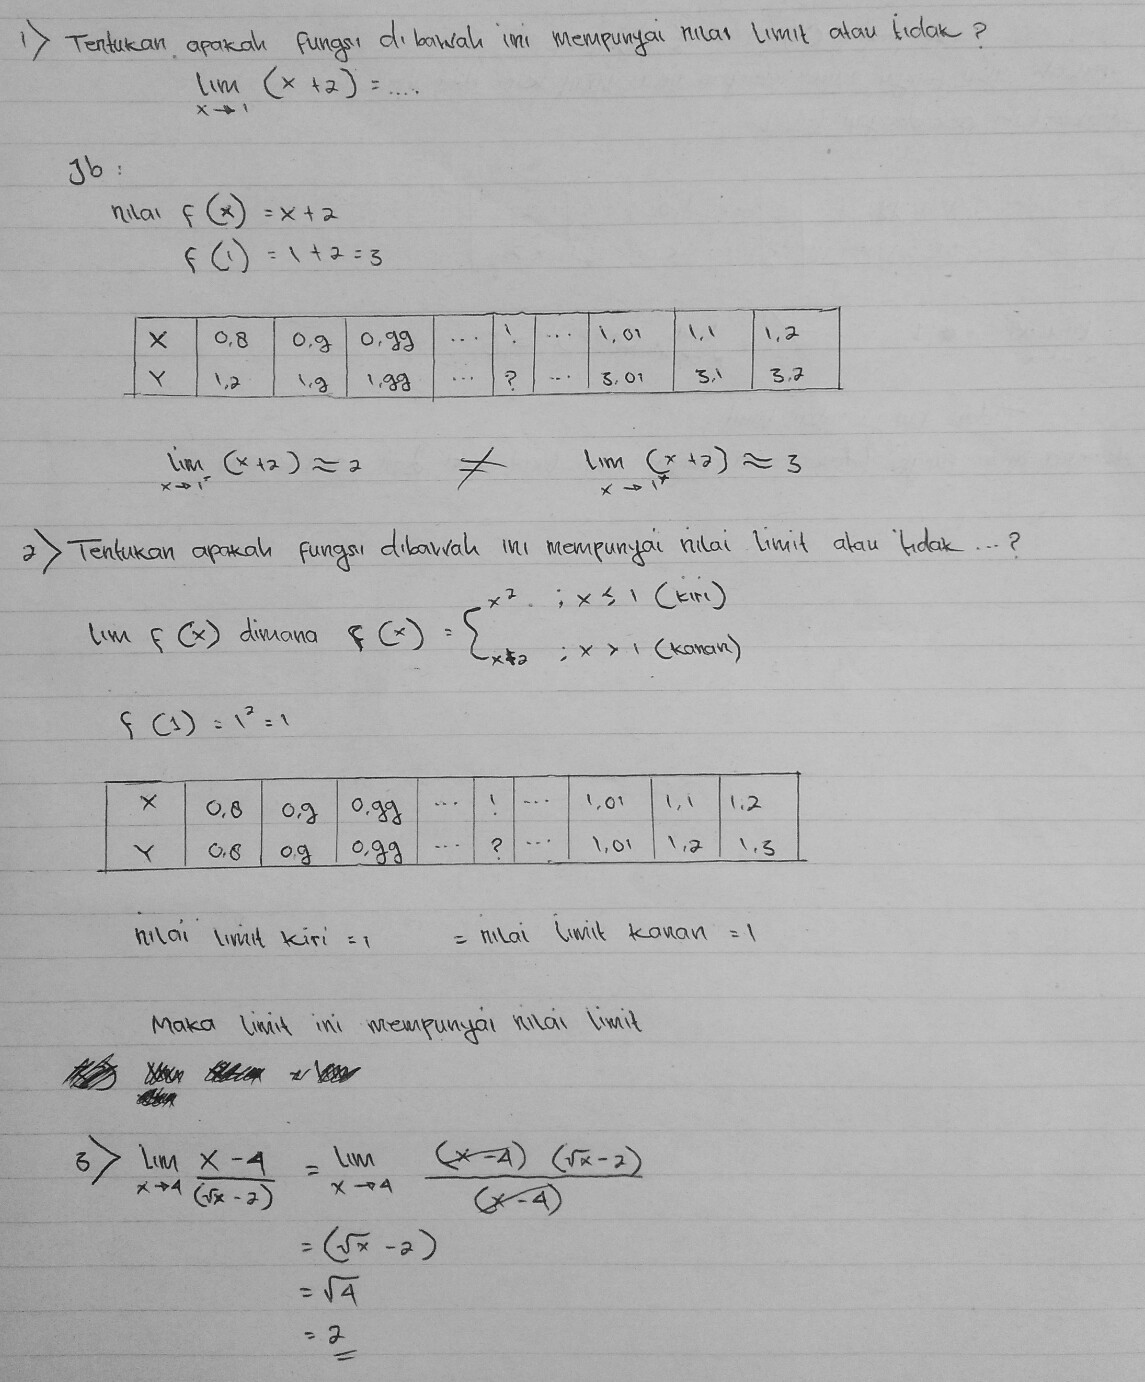 1) Tentukan apakah fungsi dibawah ini mempunyai nilai limit atau tidak ?
lim (x + 2) = ....
x → 1
Jb :
nilai f (x) = x + 2
f (1) = 1 + 2 = 3
X 0,8 0,9 0,99 ... 1 ... 1,01 1,1 1,2
Y 1,2 1,9 1,99 ... ? ... 3,01 3,1 3,2
lim (x + 2) ≈ 2 ≠ lim (x + 2) ≈ 3
x → 1⁻ x → 1⁺
2) Tentukan apakah fungsi dibawah ini mempunyai nilai limit atau tidak ... ?
lim f (x) dimana f (x) = { x² ; x ≤ 1 (kiri)
x+2 ; x > 1 (kanan)
f (1) = 1² = 1
X 0,8 0,9 0,99 ... 1 ... 1,01 1,1 1,2
Y 0,8 0,9 0,99 ... ? ... 1,01 1,2 1,3
nilai limit kiri = 1 = nilai limit kanan = 1
Maka limit ini mempunyai nilai limit
3) lim x - 4 / (√x - 2) = lim (x - 4) (√x - 2) / (x - 4)
x → 4 x → 4
= (√x - 2)
= √4
= 2